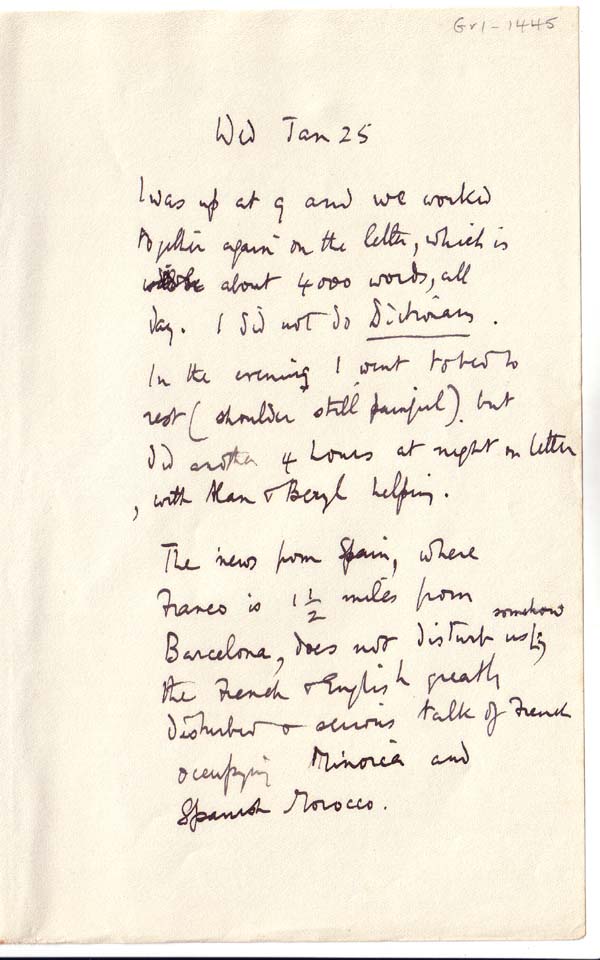 Gr1-1445
Wed Jan 25
I was up at 9 and we worked
together again on the letter, which is
about 4000 words, all
day. I did not do Dictionary.
In the evening I went to bed to
rest (shoulder still painful) but
did another 4 hours at night on letter
, with Alan & Beryl helping.
The news from Spain, where
Franco is 1 1/2 miles from
somehow
Barcelona, does not disturb us
the French & English greatly
disturbed & serious talk of French
occupying Minorca and
Spanish Morocco.